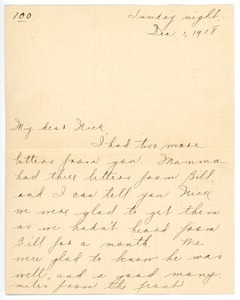 100
Sunday night.
Dec. 1, 1918
My dear Nick,
I had two more
letters from you. Mamma
had three letters from Bill
and I can tell you Nick
we were glad to get them
as we hadn't heard from
Bill for a month. We
were glad to know he was
well, and a good many
miles from the front